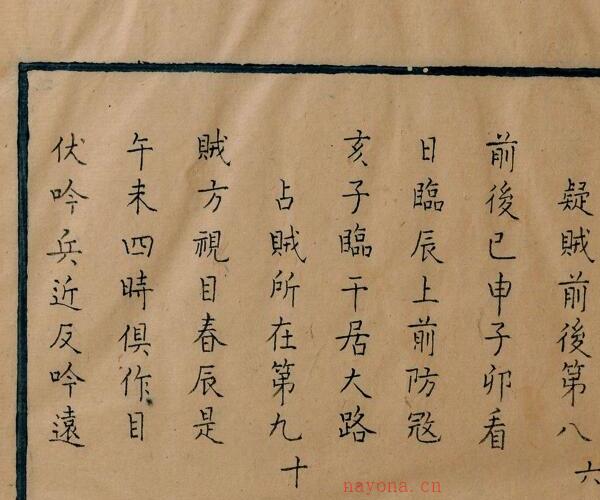 疑賊前後第八六
前後已申子卯看
日臨辰上前防寇
亥子臨干居大路
占賊所在第九十
賊方視目春辰是
午未四時俱作目
伏吟兵近反吟遠
nayona.cn